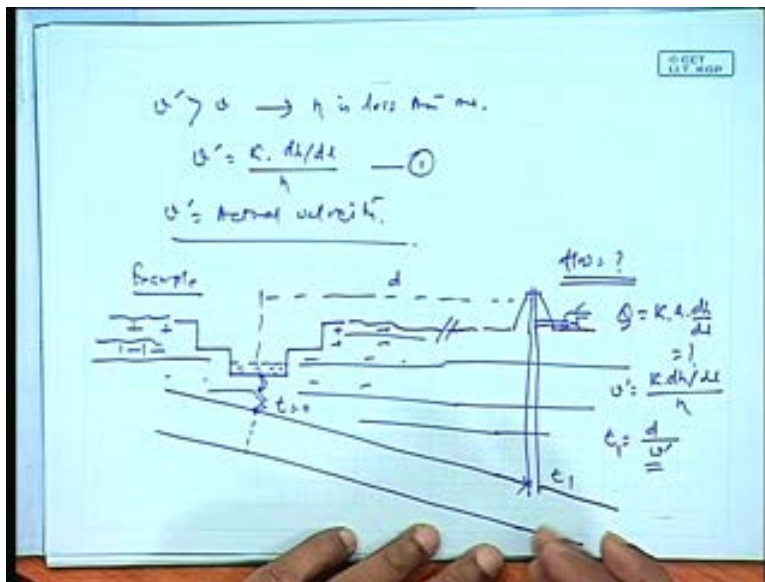 © CET
I.I.T. KGP
v' > v → n is less than one.
v' = K. dh/dl / n — ①
v' = Actual velocity.
Example
d
flow = ?
Q = K.A. dh/dl
= ?
v' = K. dh/dl / n
t = 0
t₁ = d / v'
t₁